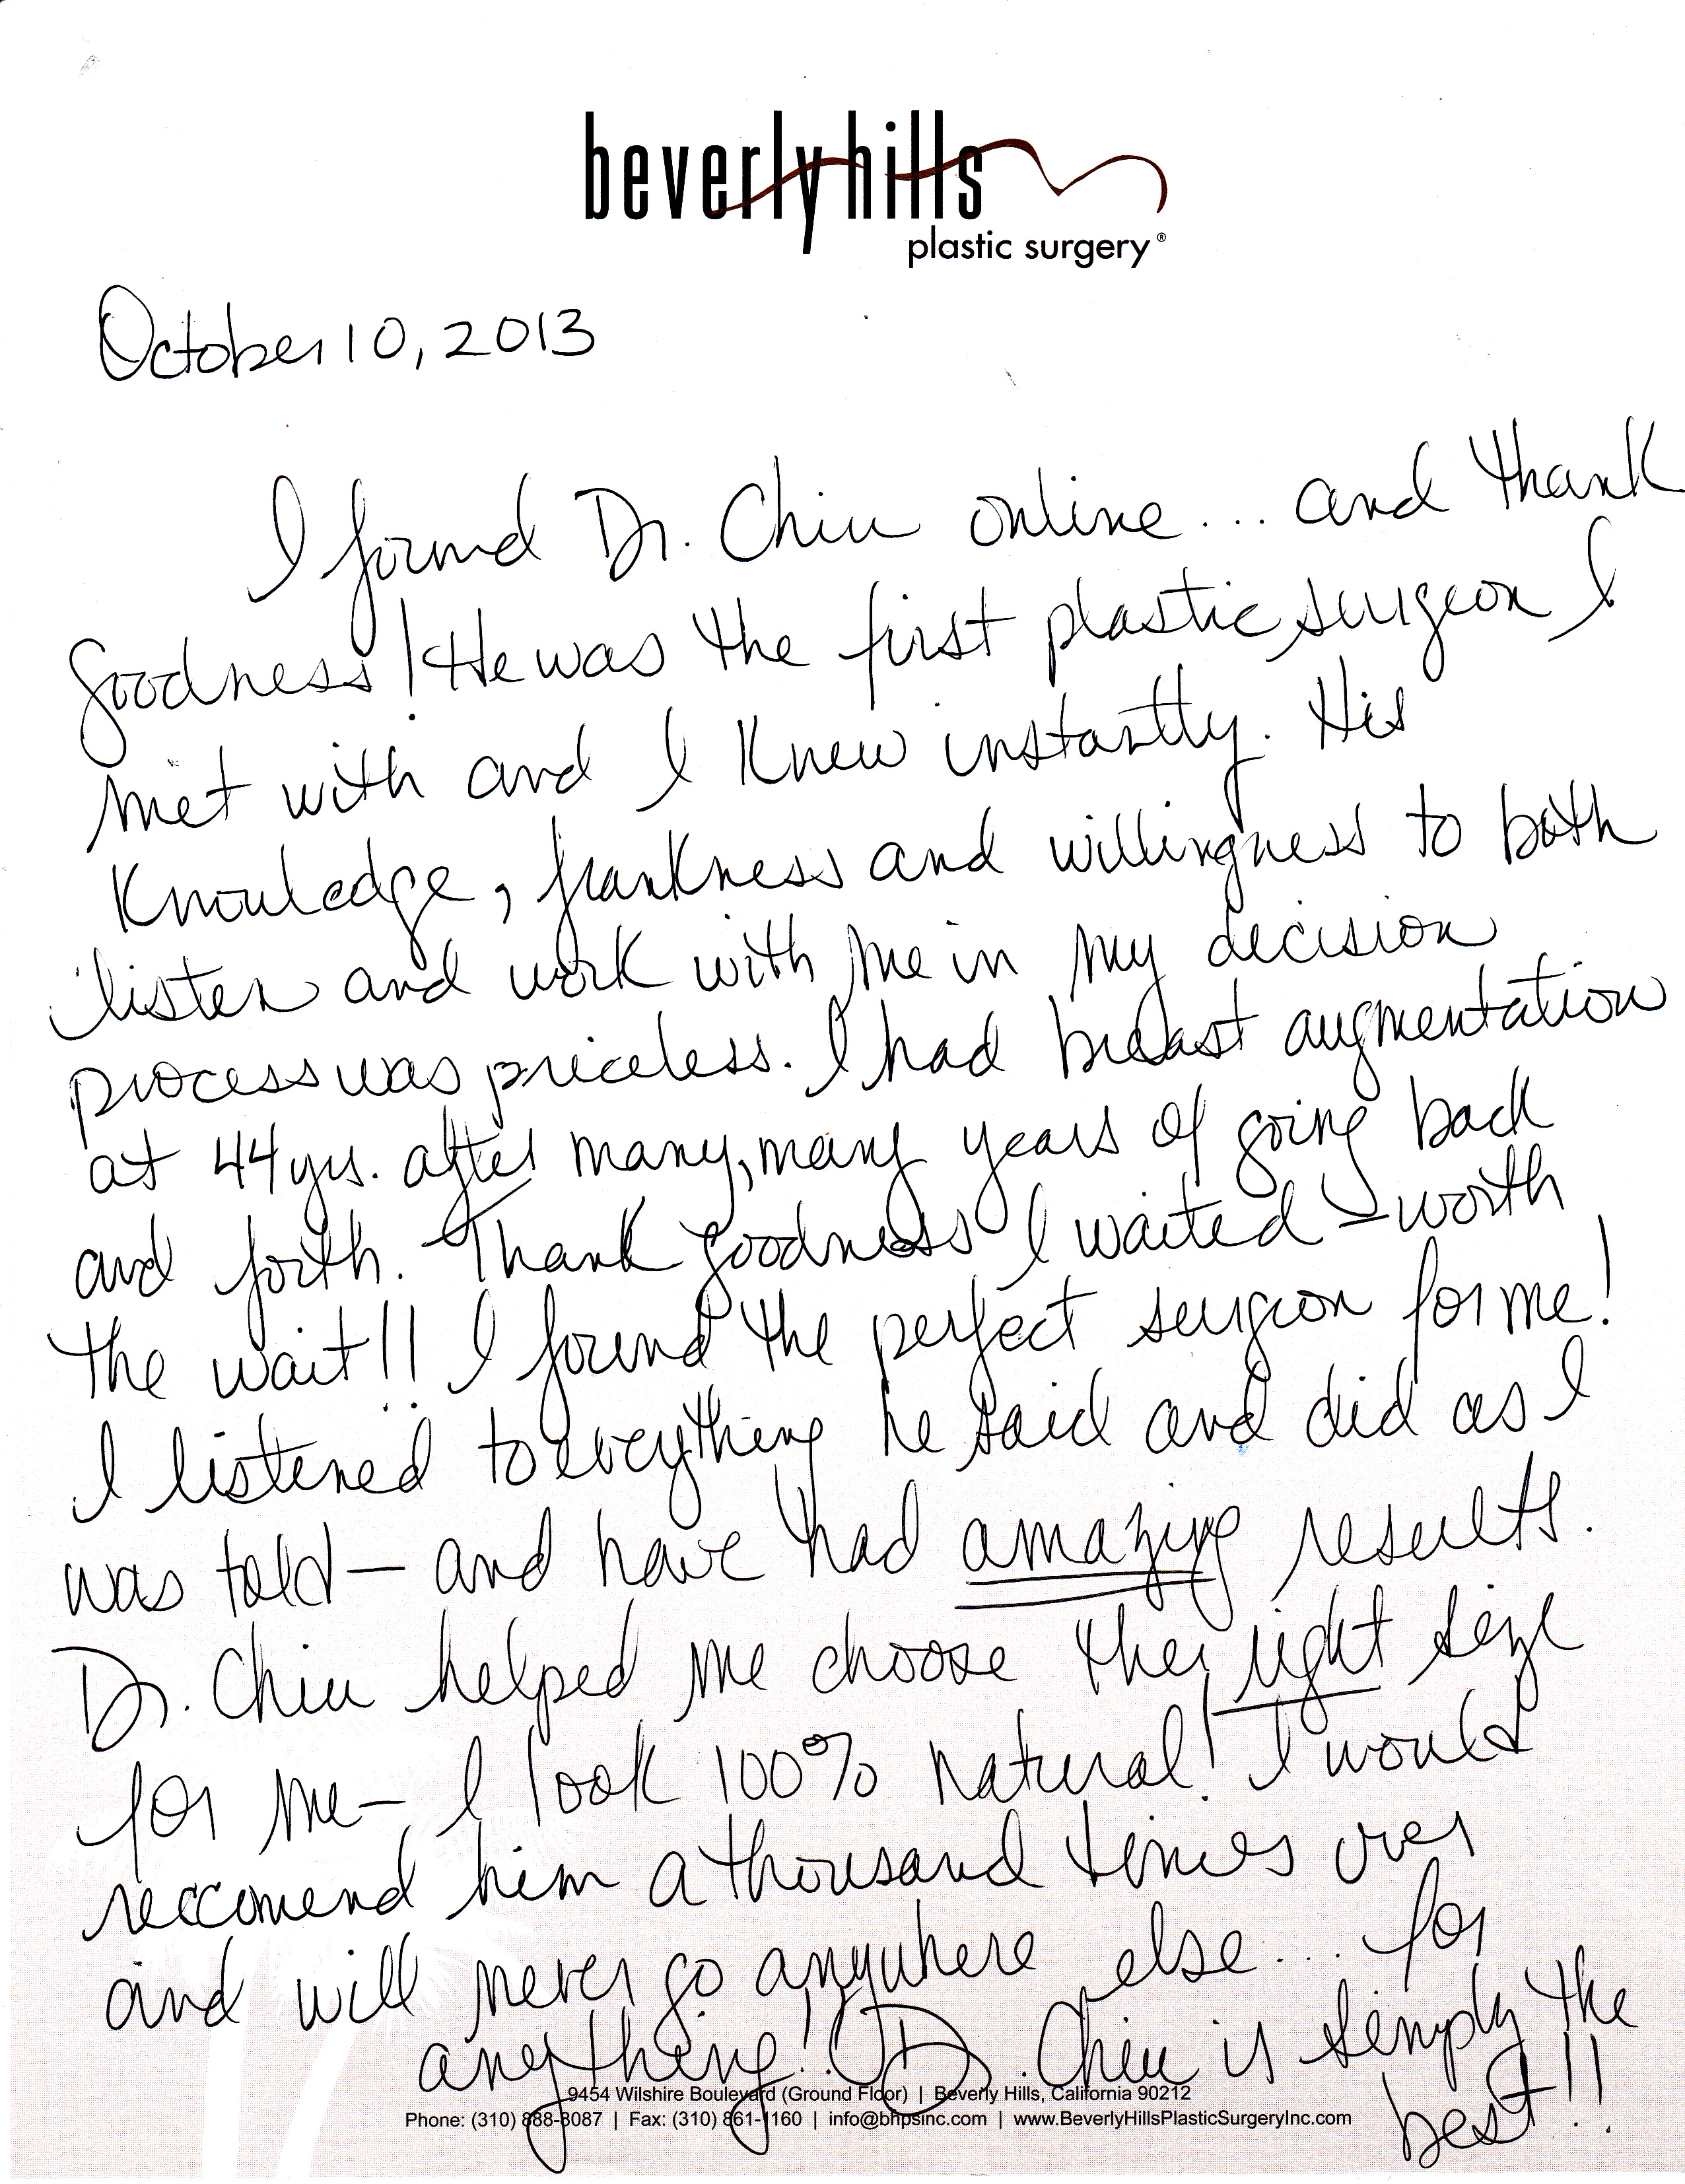 beverly hills
plastic surgery®
October 10, 2013
I found Dr. Chiu online... and thank
goodness! He was the first plastic surgeon I
met with and I knew instantly. His
knowledge, frankness and willingness to both
listen and work with me in my decision
process was priceless. I had breast augmentation
at 44 yrs. after many, many years of going back
and forth. Thank goodness I waited - worth
the wait!! I found the perfect surgeon for me!
I listened to everything he said and did as I
was told - and have had amazing results.
Dr. Chiu helped me choose the right size
for me - I look 100% natural! I would
reccomend him a thousand times over
and will never go anywhere else... for
anything! Dr. Chiu is simply the
best!!
9454 Wilshire Boulevard (Ground Floor) | Beverly Hills, California 90212
Phone: (310) 888-8087 | Fax: (310) 861-1160 | info@bhpsinc.com | www.BeverlyHillsPlasticSurgeryInc.com